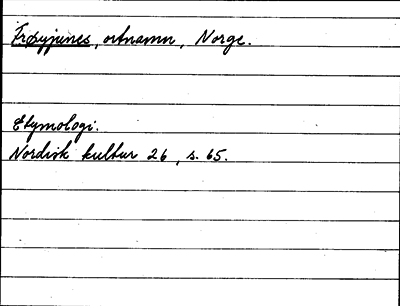 Frøyjunes, ortnamn, Norge.
Etymologi.
Nordisk kultur 26, s. 65.